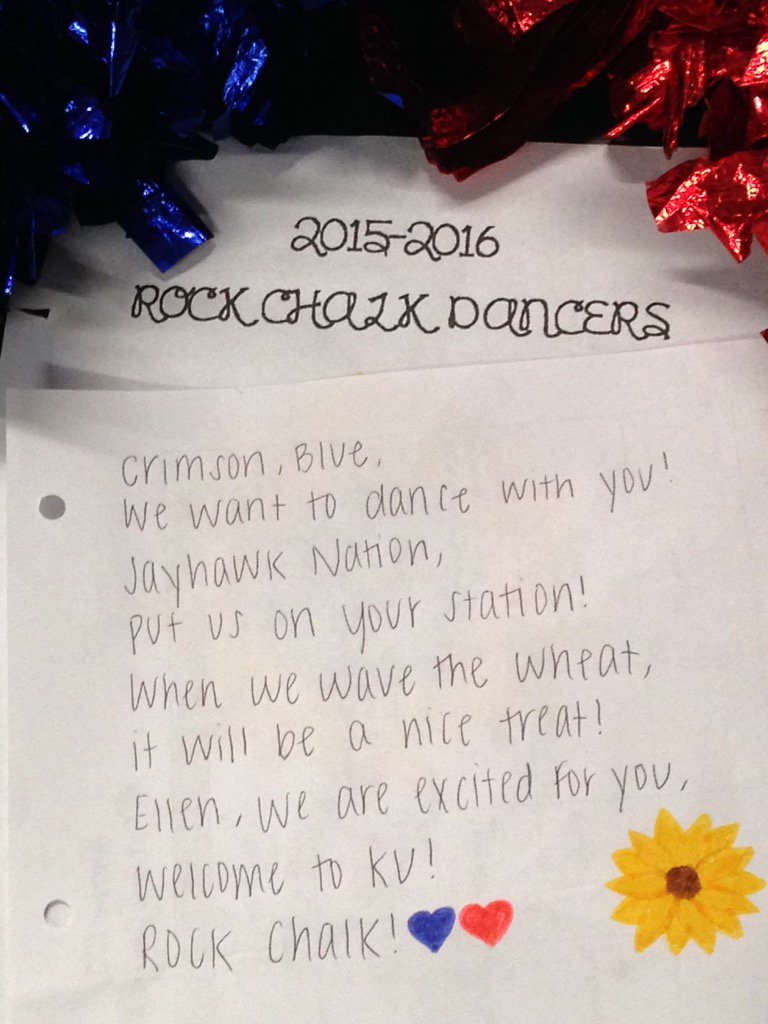 2015-2016
ROCK CHALK DANCERS
Crimson, Blue,
We want to dance with you!
Jayhawk Nation,
put us on your station!
When we wave the wheat,
it will be a nice treat!
Ellen, we are excited for you,
Welcome to KU!
ROCK Chalk!